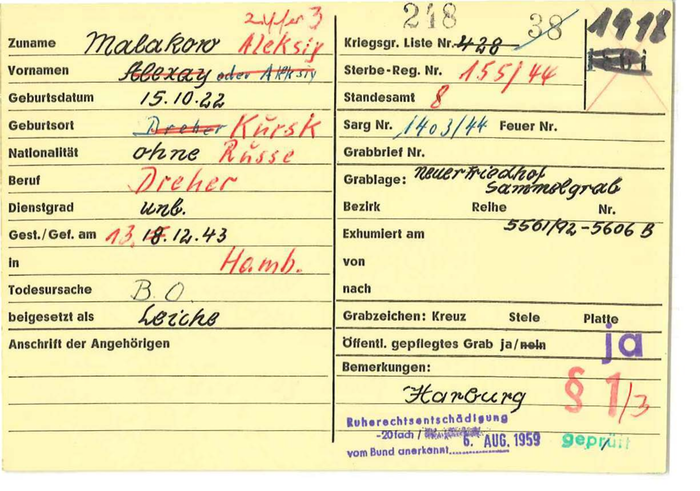 Ziffer 3
Zuname Malakow Aleksiy
Vornamen Alexay oder Alksiy
Geburtsdatum 15.10.22
Geburtsort Dreher Kursk
Nationalität ohne Russe
Beruf Dreher
Dienstgrad unb.
Gest./Gef. am 13. 18.12.43
in Hamb.
Todesursache B.O.
beigesetzt als Leiche
Anschrift der Angehörigen
248 38 1918
Kriegsgr. Liste Nr. 428
Sterbe-Reg. Nr. 155/44
Standesamt 8
Sarg Nr. 1403/44 Feuer Nr.
Grabbrief Nr.
Grablage: Neuerfriedhof
Sammelgrab
Bezirk Reihe Nr.
5561/92-5606 B
Exhumiert am
von
nach
Grabzeichen: Kreuz Stele Platte
Öffentl. gepflegtes Grab ja/nein ja
Bemerkungen:
Harburg § 1/3
Ruherechtsentschädigung
-20fach /
vom Bund anerkannt 6. AUG. 1959 geprüft